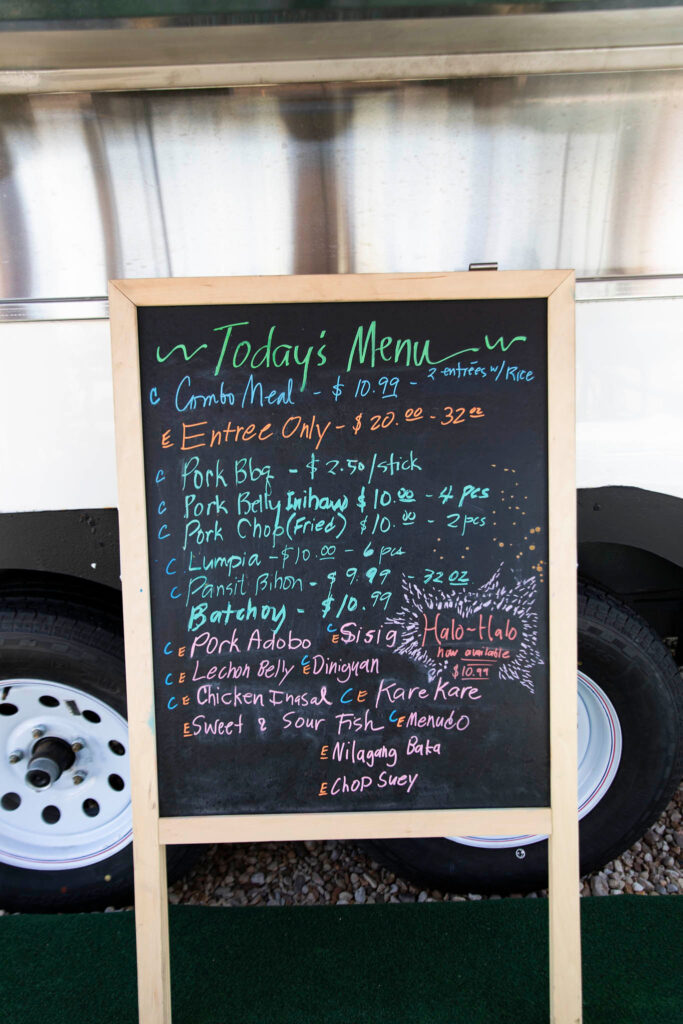 Today's Menu
C Combo Meal - $10.99 - 2 entrées w/ Rice
E Entree Only - $20.00 - 32oz
C Pork Bbq - $2.50/stick
C Pork Belly Inihaw $10.00 - 4 pcs
C Pork Chop (Fried) $10.00 - 2 pcs
C Lumpia - $10.00 - 6 pcs
C Pansit Bihon - $9.99 - 32oz
Batchoy - $10.99
Halo-Halo
now available
$10.99
C E Pork Adobo C E Sisig
C E Lechon Belly C E Diniguan
C E Chicken Inasal C E Kare Kare
E Sweet & Sour Fish C E Menudo
E Nilagang Baka
E Chop Suey